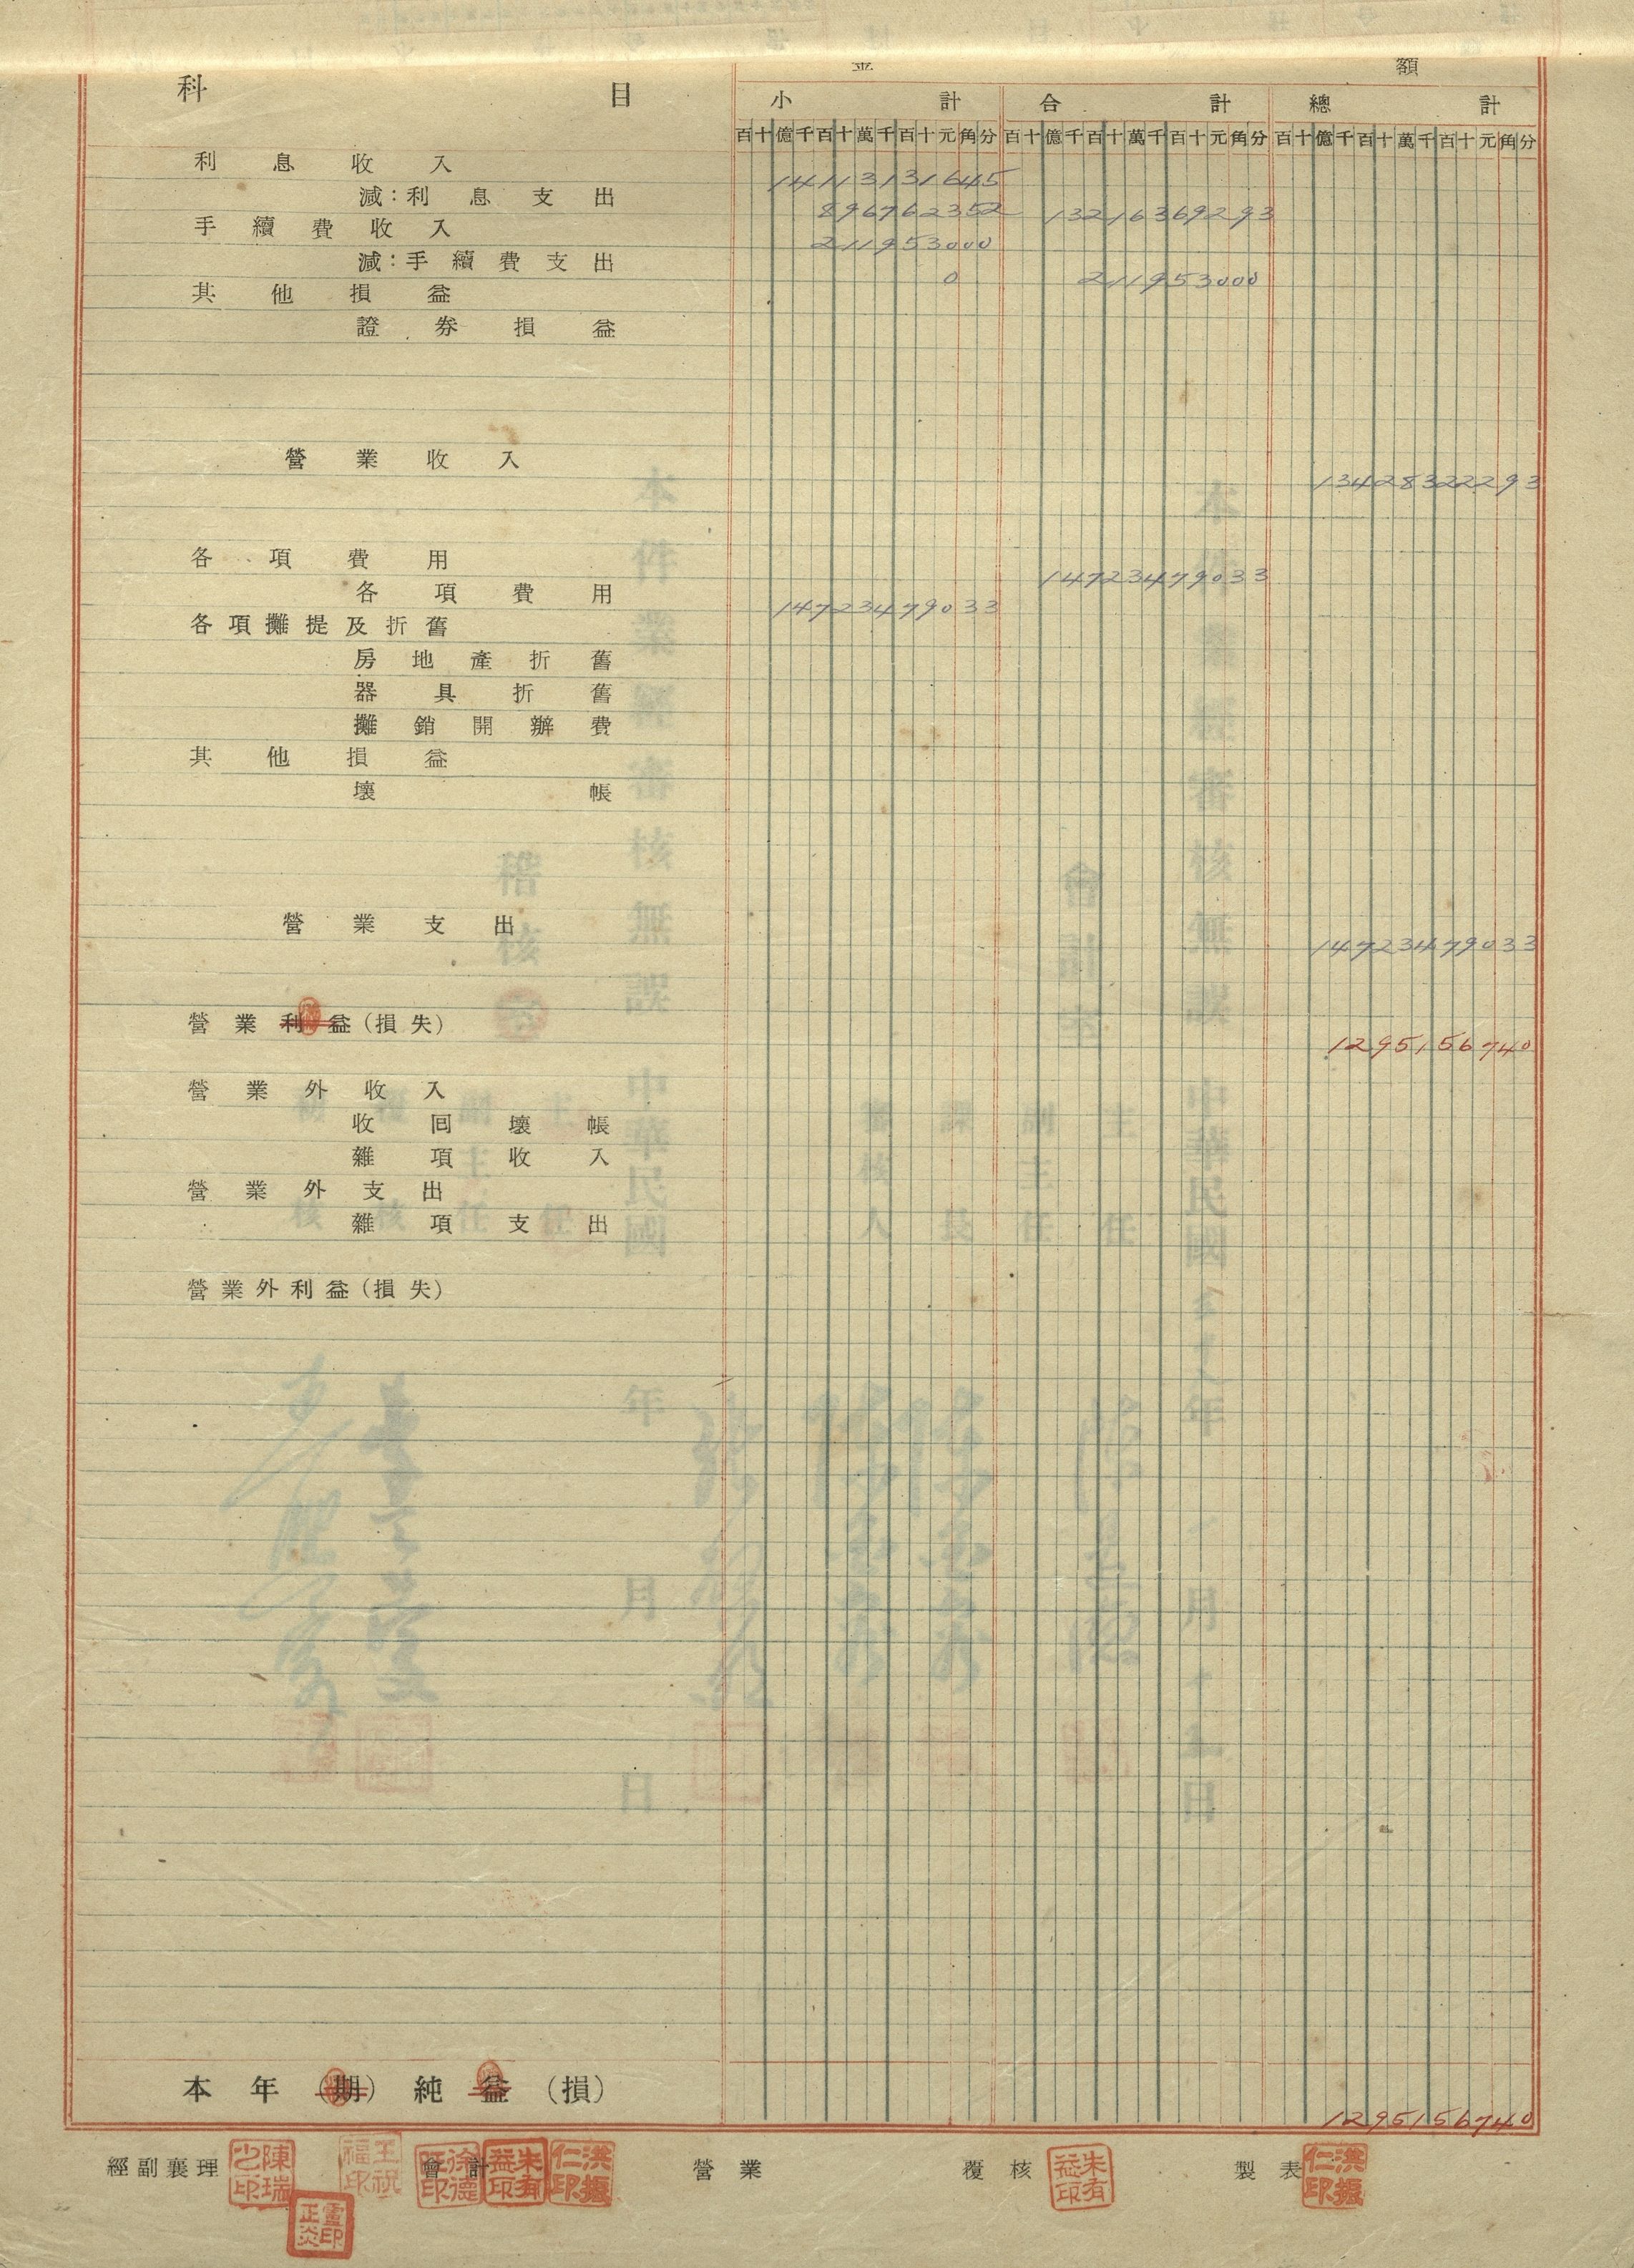 科 目 金 額
小 計 合 計 總 計
百十億千百十萬千百十元角分 百十億千百十萬千百十元角分 百十億千百十萬千百十元角分
利息收入 14113131645
減:利息支出 896762352 13216369293
手續費收入 211953000
減:手續費支出 0 211953000
其他損益
證券損益
營業收入 13428322293
各項費用 14723479033
各項費用 14723479033
各項攤提及折舊
房地產折舊
器具折舊
攤銷開辦費
其他損益
壞帳
營業支出 14723479033
營業利益(損失) 1295156740
營業外收入
收回壞帳
雜項收入
營業外支出
雜項支出
營業外利益(損失)
本年(期)純益(損) 1295156740
經副襄理 會計 營業 覆核 製表
王祝福印
朱有益印
洪振仁印
朱有益印
洪振仁印
本件業經審核無誤 中華民國 年 月 日
稽核
本件業經審核無誤 中華民國 年 月 日
會計室